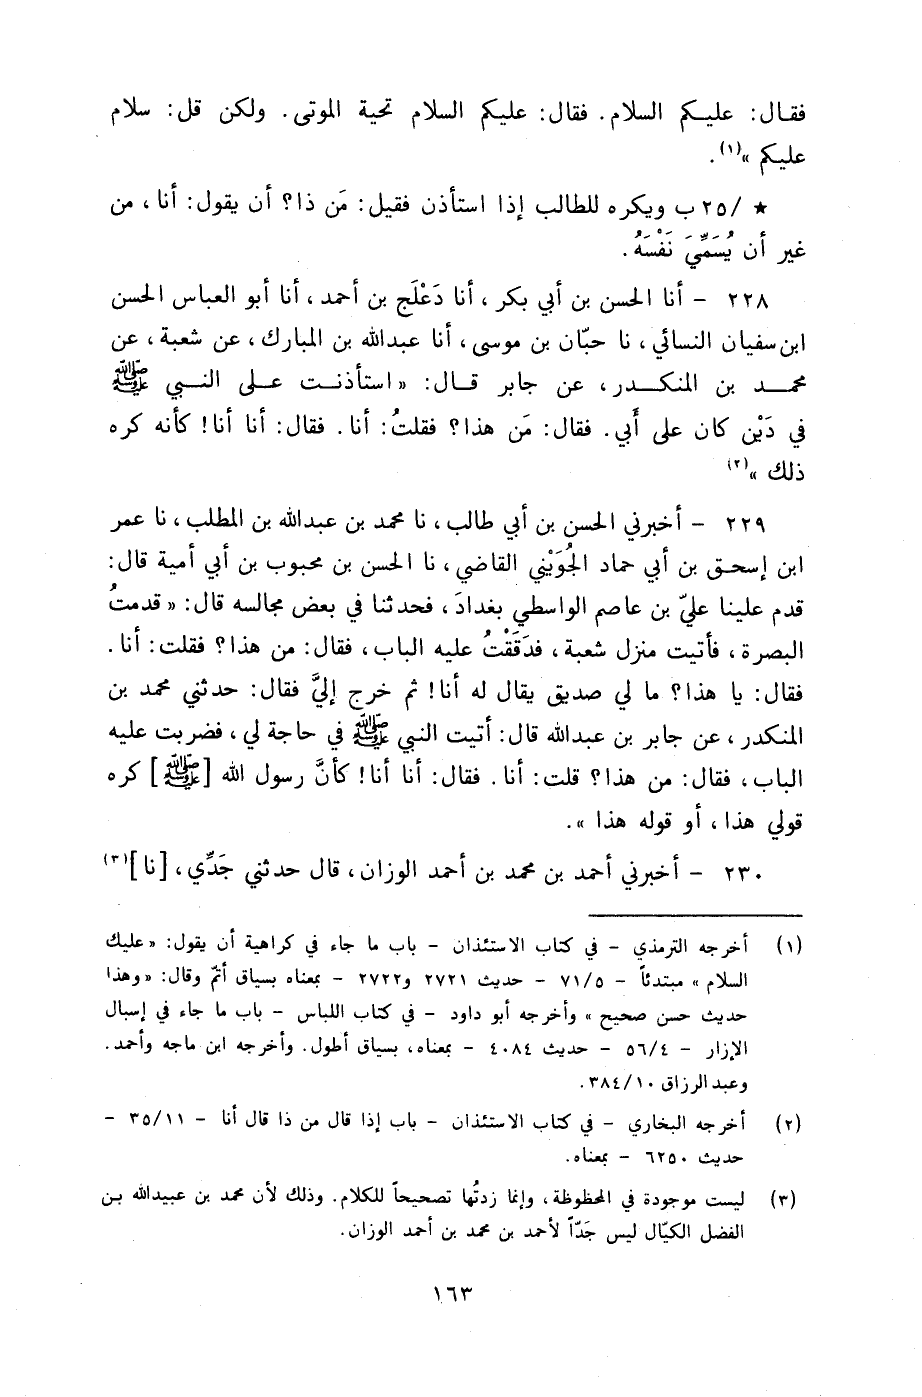 فقال: عليكم السلام. فقال: عليكم السلام تحية الموتى. ولكن قل: سلام
عليكم »(١).
★ /٢٥ ب ويكره للطالب إذا استأذن فقيل: مَن ذا؟ أن يقول: أنا، من
غير أن يُسَمِّيَ نَفْسَهُ.
٢٢٨ – أنا الحسن بن أبي بكر، أنا دَعْلَج بن أحمد، أنا أبو العباس الحسن
ابن سفيان النسائي، نا حبّان بن موسى، أنا عبدالله بن المبارك، عن شعبة، عن
محمد بن المنكدر، عن جابر قال: « استأذنت على النبي ﷺ
في دَيْن كان على أَبي. فقال: مَن هذا؟ فقلتُ: أنا. فقال: أنا أنا! كأنه كره
ذلك »(٢)
٢٢٩ – أخبرني الحسن بن أبي طالب، نا محمد بن عبدالله بن المطلب، نا عمر
ابن إسحق بن أبي حماد الجُوَيْني القاضي، نا الحسن بن محبوب بن أبي أمية قال:
قدم علينا عليّ بن عاصم الواسطي بغدادَ، فحدثنا في بعض مجالسه قال: « قدمتُ
البصرة، فأتيت منزل شعبة، فدَقَقْتُ عليه الباب، فقال: من هذا؟ فقلت: أنا.
فقال: يا هذا؟ ما لي صديق يقال له أنا! ثم خرج إليَّ فقال: حدثني محمد بن
المنكدر، عن جابر بن عبدالله قال: أتيت النبي ﷺ في حاجة لي، فضربت عليه
الباب، فقال: من هذا؟ قلت: أنا. فقال: أنا أنا! كأنَّ رسول الله [ﷺ] كره
قولي هذا، أو قوله هذا ».
٢٣٠ – أخبرني أحمد بن محمد بن أحمد الوزان، قال حدثني جَدِّي، [نا](٣)
(١) أخرجه الترمذي – في كتاب الاستئذان – باب ما جاء في كراهية أن يقول: « عليك
السلام » مبتدئاً – ٧١/٥ – حديث ٢٧٢١ و٢٧٢٢ – بمعناه بسياق أتمّ وقال: « وهذا
حديث حسن صحيح » وأخرجه أبو داود – في كتاب اللباس – باب ما جاء في إسبال
الإزار – ٥٦/٤ – حديث ٤٠٨٤ – بمعناه، بسياق أطول. وأخرجه ابن ماجه وأحمد.
وعبد الرزاق ٣٨٤/١٠.
(٢) أخرجه البخاري – في كتاب الاستئذان – باب إذا قال من ذا قال أنا – ٣٥/١١ –
حديث ٦٢٥٠ – بمعناه.
(٣) ليست موجودة في المخطوطة، وإنما زدتُها تصحيحاً للكلام. وذلك لأن محمد بن عبيدالله بن
الفضل الكيّال ليس جَدّاً لأحمد بن محمد بن أحمد الوزان.
١٦٣